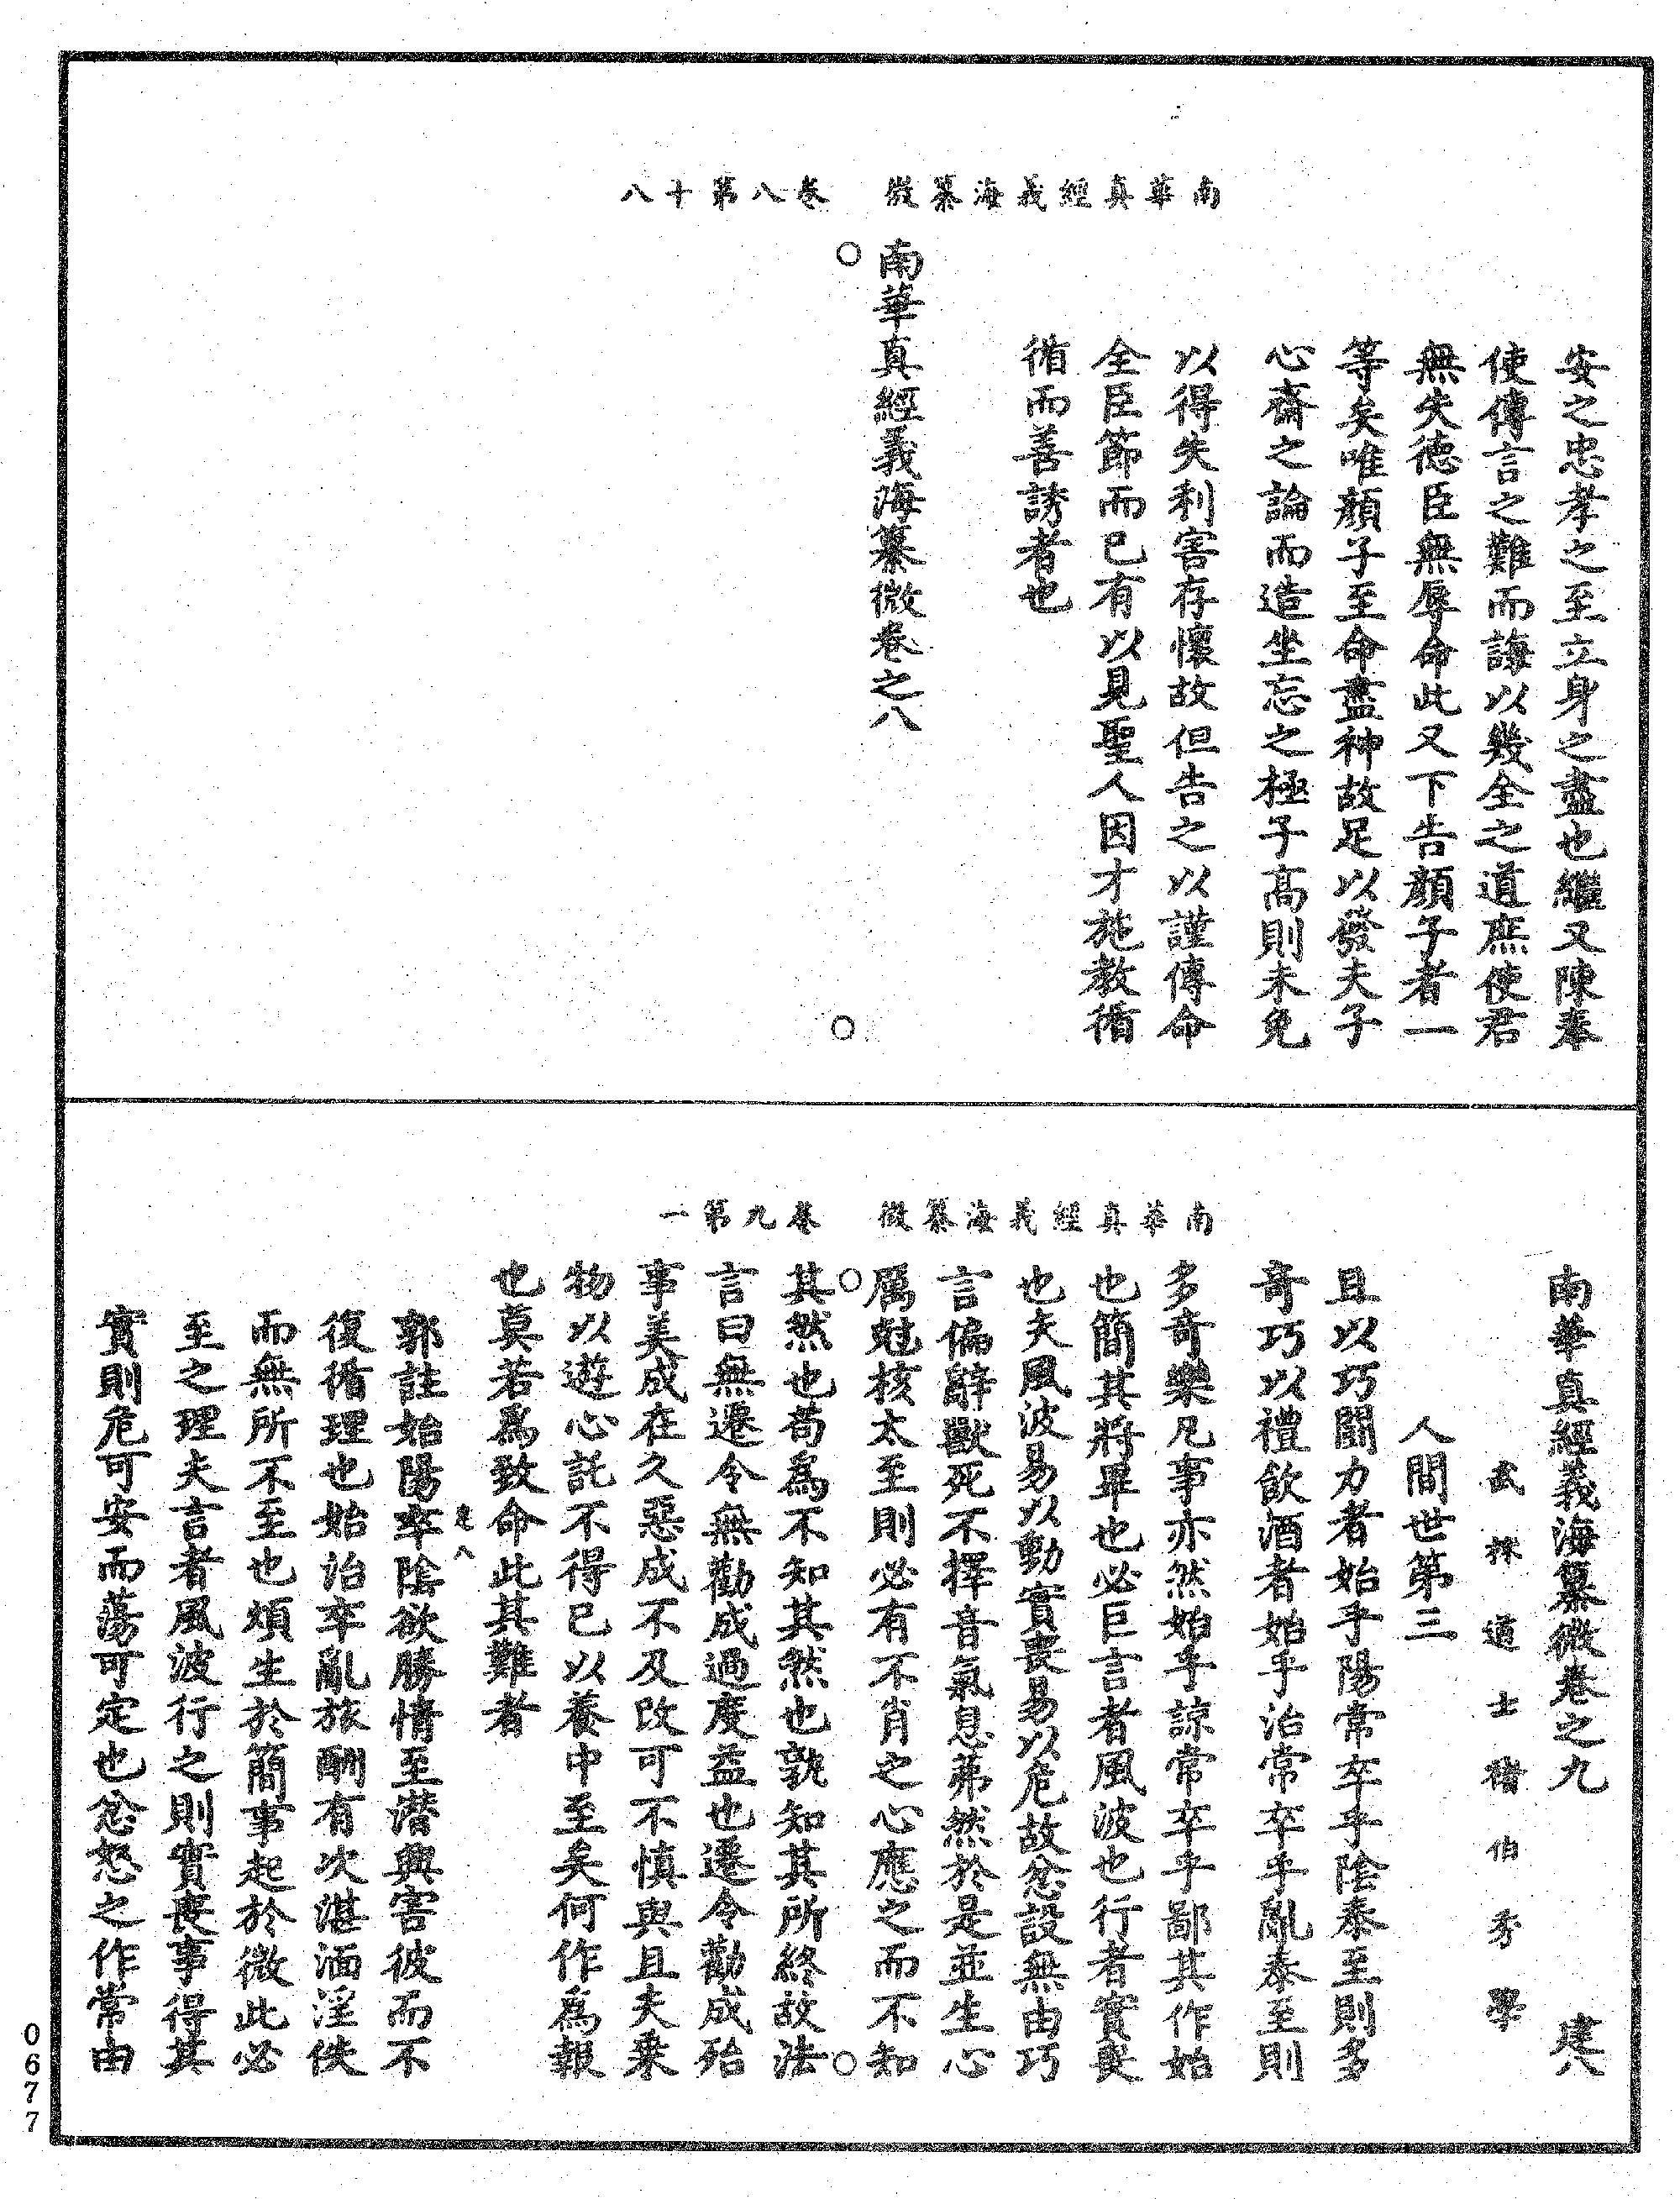 南華真經義海纂微　卷八第十八
安之忠孝之至立身之盡也繼又陳奉
使傳言之難而誨以幾全之道庶使君
無失德臣無辱命此又下告顏子者一
等矣唯顏子至命盡神故足以發夫子
心齋之論而造坐忘之極子高則未免
以得失利害存懷故但告之以謹傳命
全臣節而已有以見聖人因才施教循
循而善誘者也
南華真經義海纂微卷之八
南華真經義海纂微　卷九第一
南華真經義海纂微卷之九　建八
武林道士褚伯秀學
人間世第三
且以巧鬪力者始乎陽常卒乎陰泰至則多
奇巧以禮飲酒者始乎治常卒乎亂泰至則
多奇樂凡事亦然始乎諒常卒乎鄙其作始
也簡其將畢也必巨言者風波也行者實喪
也夫風波易以動實喪易以危故忿設無由巧
言偏辭獸死不擇音氣息茀然於是並生心
厲尅核太至則必有不肖之心應之而不知
其然也苟為不知其然也孰知其所終故法
言曰無遷令無勸成過度益也遷令勸成殆
事美成在久惡成不及改可不慎與且夫乘
物以遊心託不得已以養中至矣何作為報
也莫若為致命此其難者
建八
郭註始陽卒陰欲勝情至潛興害彼而不
復循理也始治卒亂旅酬有次湛湎淫佚
而無所不至也煩生於簡事起於微此必
至之理夫言者風波行之則實喪事得其
實則危可安而蕩可定也忿怒之作常由
0677